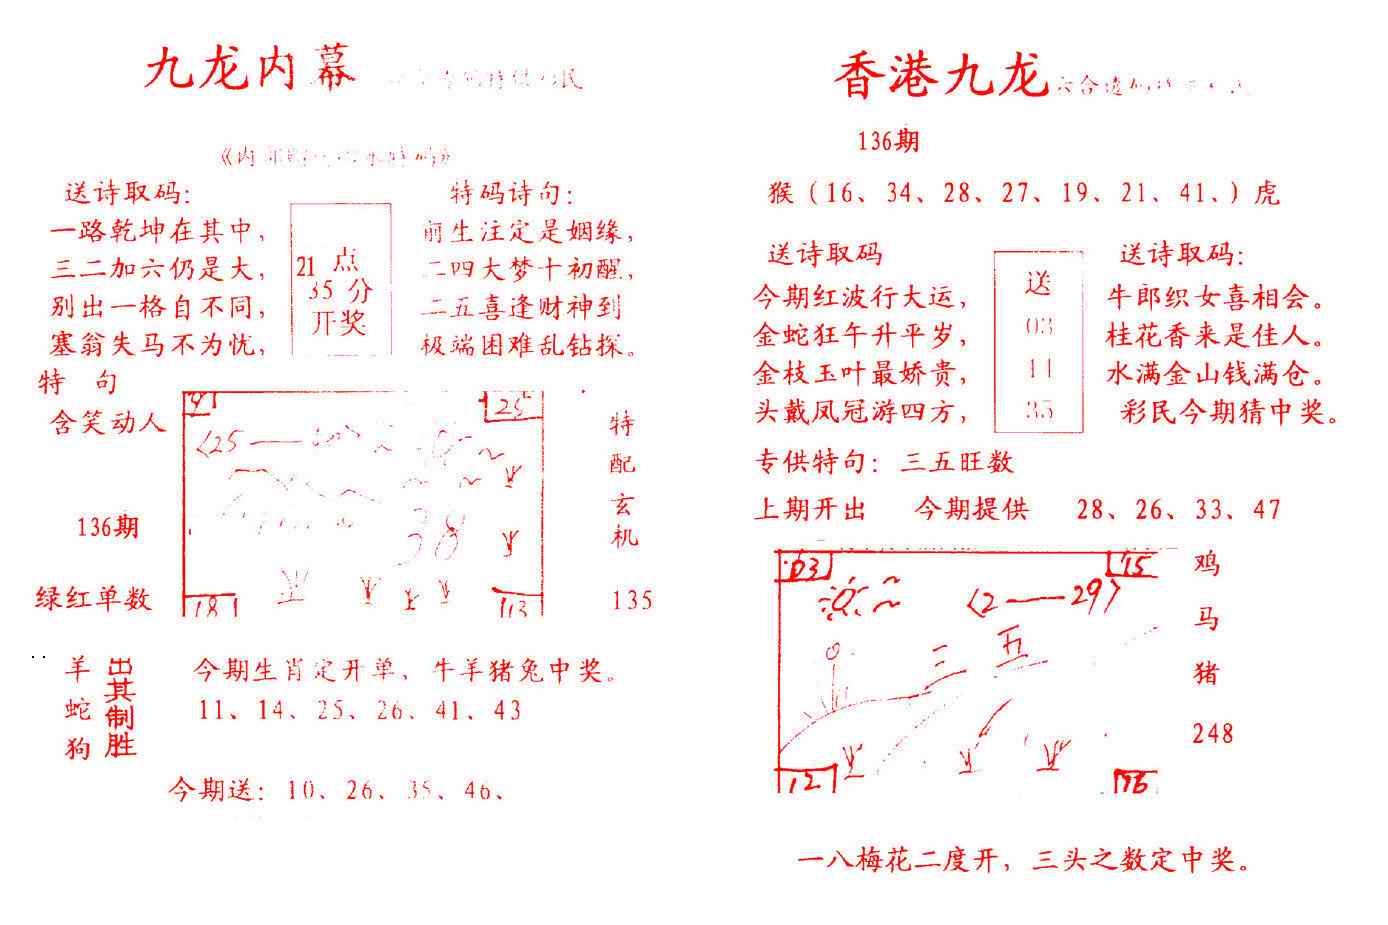 九龙内幕
136期
送诗取码:
一路乾坤在其中,
三二加六仍是大,
别出一格自不同,
塞翁失马不为忧,
21 点
35 分
开奖
特码诗句:
前生注定是姻缘,
二四大梦十初醒,
二五喜逢财神到
极端困难乱钻探。
特 句
含笑动人
绿红单数
25
〈25
38
18
113
特
配
玄
机
135
羊
蛇
狗
出其制胜
今期生肖定开单, 牛羊猪兔中奖。
11、14、25、26、41、43
今期送: 10、26、35、46、
香港九龙
136期
猴（16、34、28、27、19、21、41、）虎
送诗取码
今期红波行大运,
金蛇狂午升平岁,
金枝玉叶最娇贵,
头戴凤冠游四方,
送
03
11
35
送诗取码:
牛郎织女喜相会。
桂花香来是佳人。
水满金山钱满仓。
彩民今期猜中奖。
专供特句: 三五旺数
上期开出 今期提供 28、26、33、47
03
15
〈2——29〉
三 五
12
鸡
马
猪
248
一八梅花二度开, 三头之数定中奖。